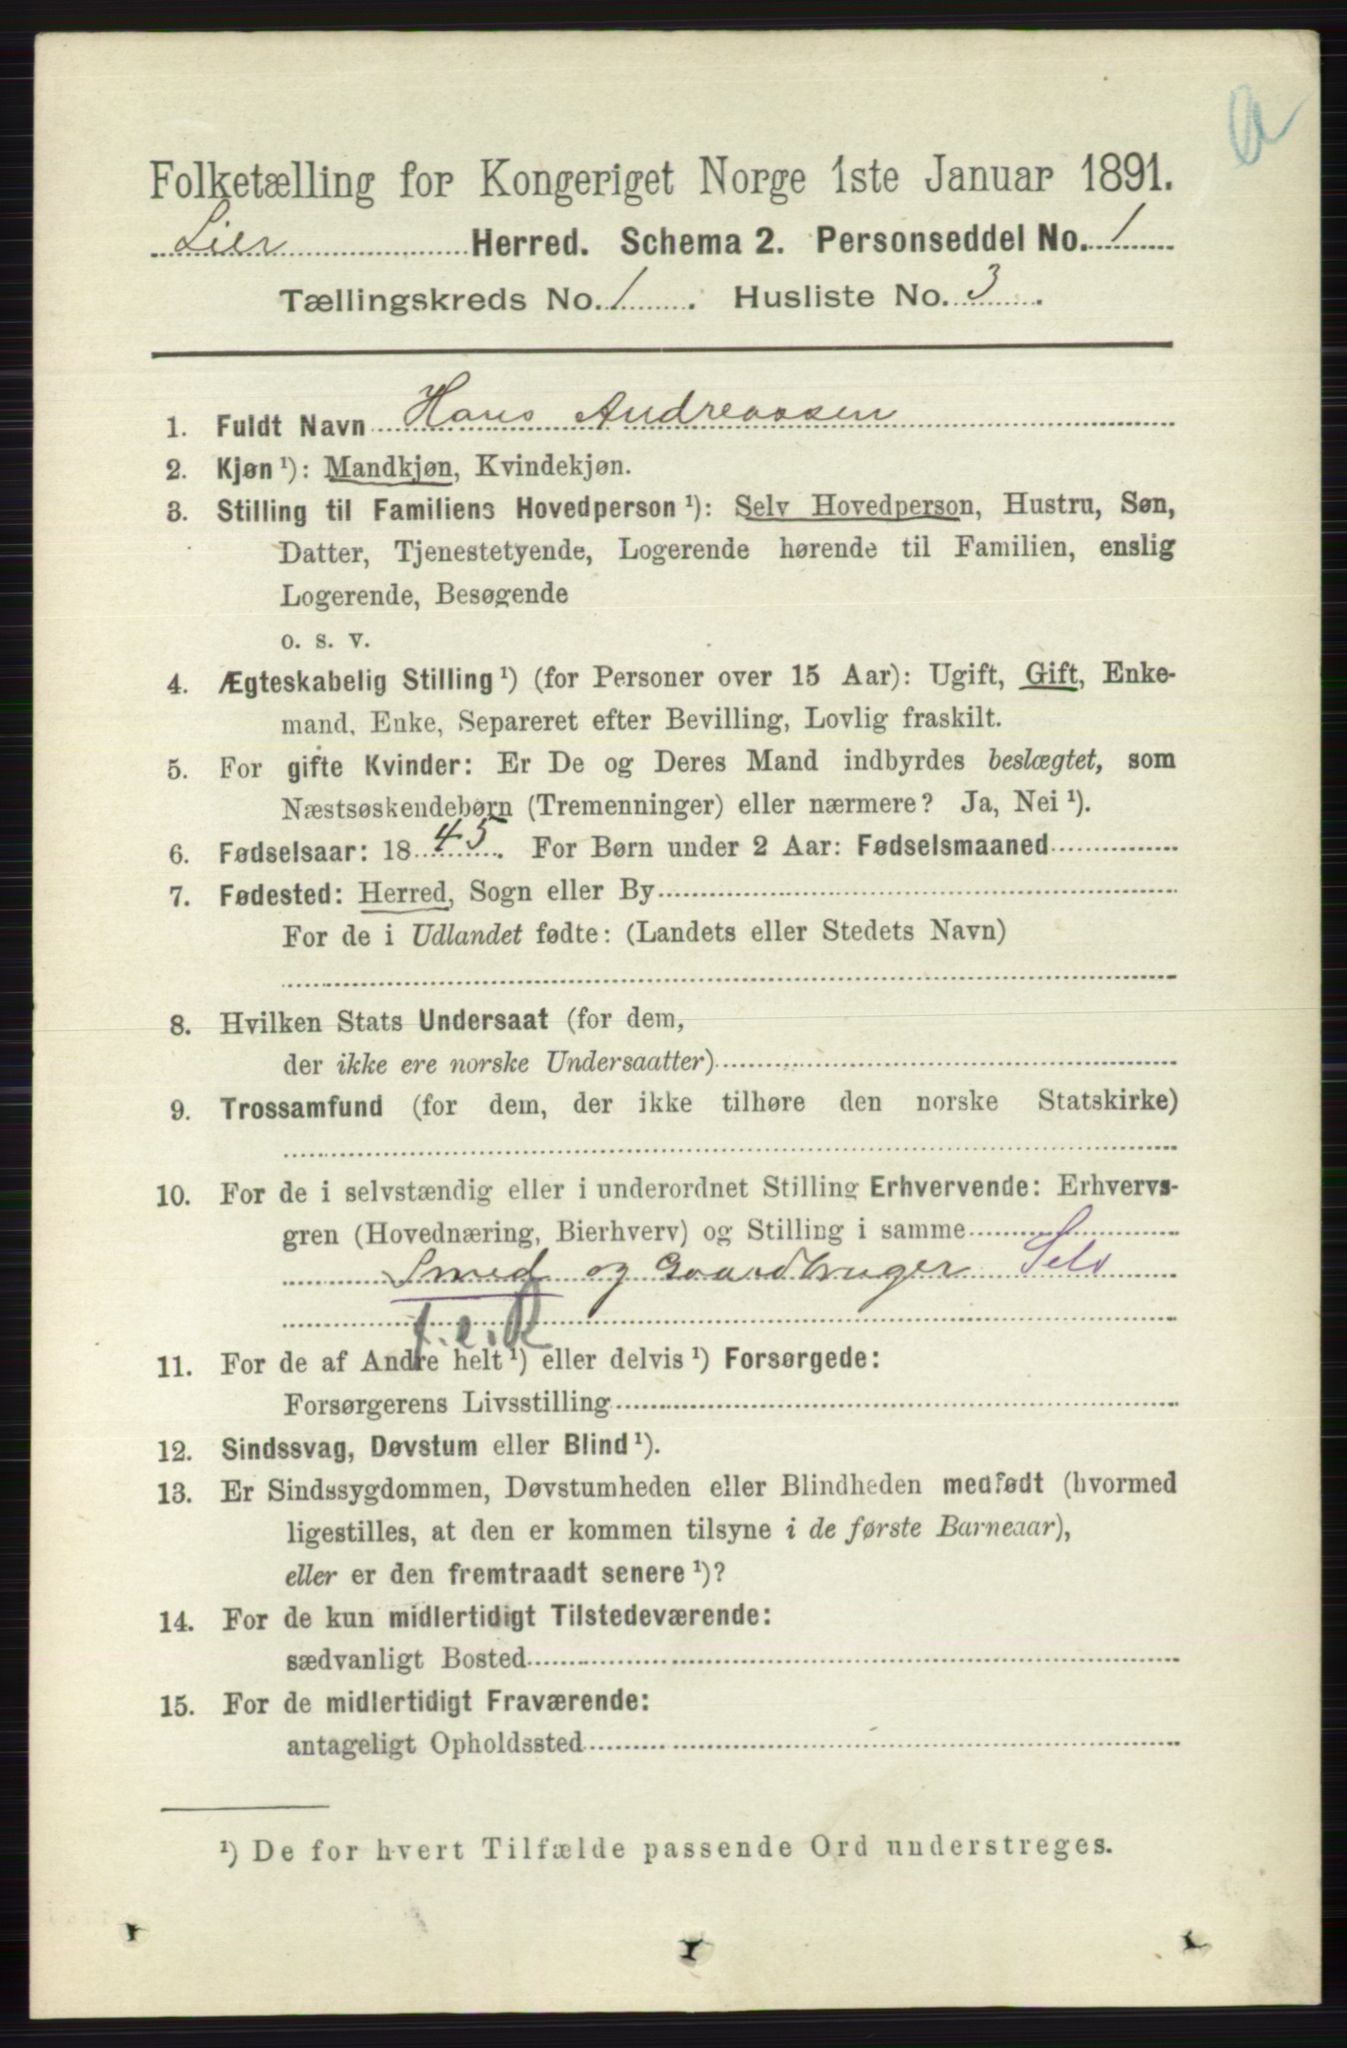 a
Folketælling for Kongeriget Norge 1ste Januar 1891.
Lier Herred. Schema 2. Personseddel No. 1
Tællingskreds No. 1. Husliste No. 3.
1. Fuldt Navn Hans Andreassen
2. Kjøn ¹): Mandkjøn, Kvindekjøn.
3. Stilling til Familiens Hovedperson ¹): Selv Hovedperson, Hustru, Søn,
Datter, Tjenestetyende, Logerende hørende til Familien, enslig
Logerende, Besøgende
o. s. v.
4. Ægteskabelig Stilling ¹) (for Personer over 15 Aar): Ugift, Gift, Enke-
mand, Enke, Separeret efter Bevilling, Lovlig fraskilt.
5. For gifte Kvinder: Er De og Deres Mand indbyrdes beslægtet, som
Næstsøskendebørn (Tremenninger) eller nærmere? Ja, Nei ¹).
6. Fødselsaar: 1845. For Børn under 2 Aar: Fødselsmaaned
7. Fødested: Herred, Sogn eller By
For de i Udlandet fødte: (Landets eller Stedets Navn)
8. Hvilken Stats Undersaat (for dem,
der ikke ere norske Undersaatter)
9. Trossamfund (for dem, der ikke tilhøre den norske Statskirke)
10. For de i selvstændig eller i underordnet Stilling Erhvervende: Erhvervs-
gren (Hovednæring, Bierhverv) og Stilling i samme
Smed og Gaardbruger Selv
f.e.R
11. For de af Andre helt ¹) eller delvis ¹) Forsørgede:
Forsørgerens Livsstilling
12. Sindssvag, Døvstum eller Blind ¹).
13. Er Sindssygdommen, Døvstumheden eller Blindheden medfødt (hvormed
ligestilles, at den er kommen tilsyne i de første Barneaar),
eller er den fremtraadt senere ¹)?
14. For de kun midlertidigt Tilstedeværende:
sædvanligt Bosted
15. For de midlertidigt Fraværende:
antageligt Opholdssted
¹) De for hvert Tilfælde passende Ord understreges.